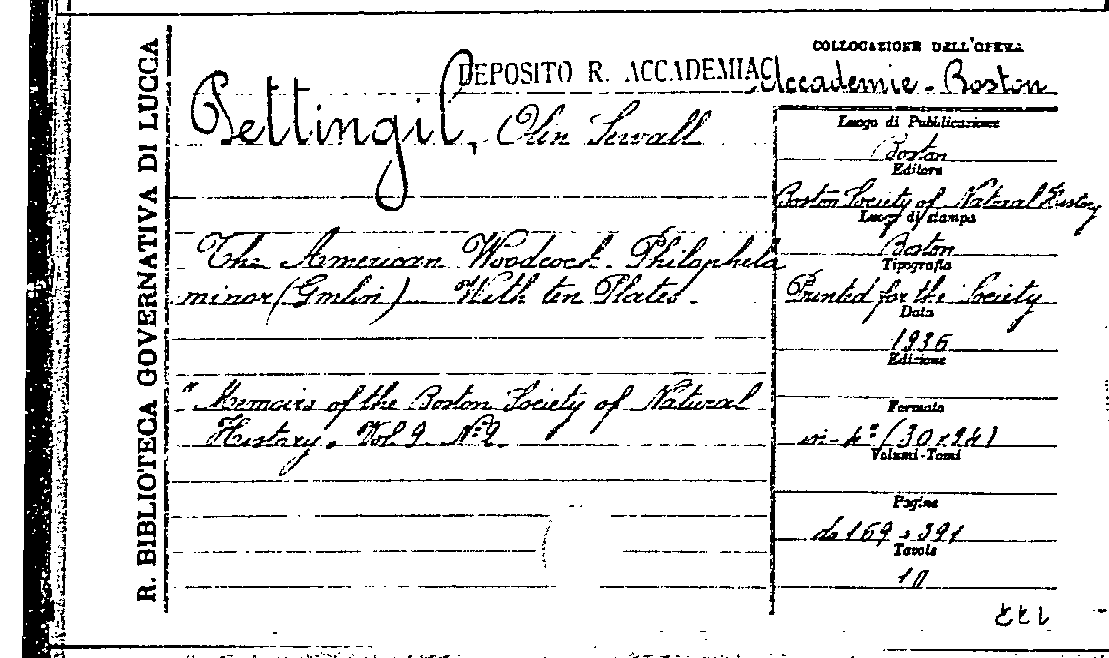 R. BIBLIOTECA GOVERNATIVA DI LUCCA
DEPOSITO R. ACCADEMIA
COLLOCAZIONE DELL'OPERA
Accademie - Boston
Pettingil, Olin Sewall
The American Woodcock - Philophela
minor (Gmlin) - With ten Plates -
"Memoirs of the Boston Society of Natural
History, Vol 9 Nº 2
Luogo di Pubblicazione
Boston
Editore
Boston Society of Natural History
Luogo di stampa
Boston
Tipografia
Printed for the Society
Data
1936
Edizione
Formato
in-4º (30x24)
Volumi-Tomi
Pagine
da 169 a 391
Tavole
10